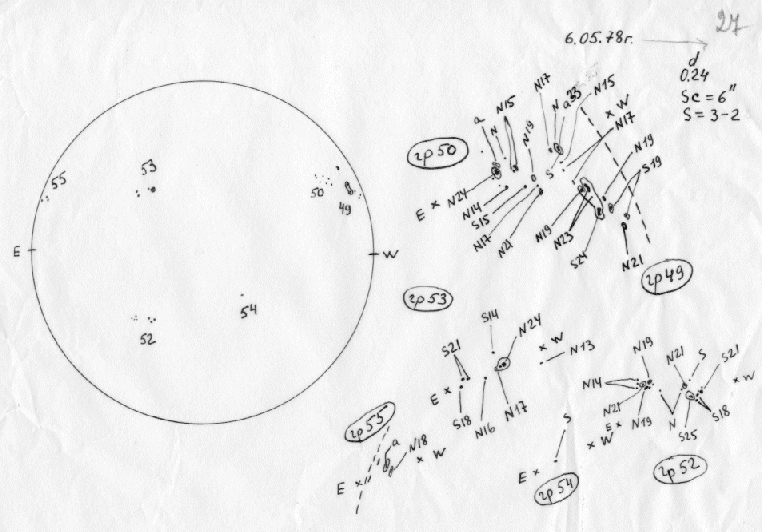 27
6.05.78г.
d
0.24
Sc = 6"
S = 3-2
E
W
55
53
50
49
54
52
гр 50
a
N
N15
N19
N17
N
a
N15
W
N17
N19
S19
S
E
N24
N14
S15
N17
N21
N19
N23
S24
N21
гр 49
гр 53
S14
N24
W
N13
S21
E
S18
N16
N17
гр 55
a
N18
W
E
S
W
E
гр 54
N19
N21
S
S21
W
N14
N21
E
N19
N
S25
S18
гр 52